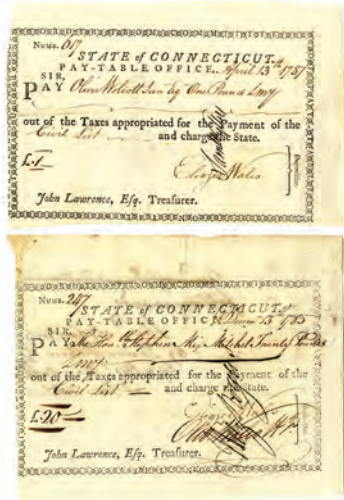 Numb. 617
STATE of CONNECTICUT.
PAY-TABLE OFFICE, April 13th 1787
SIR,
PAY Oliver Wolcott Jun Esq One Pound LMy
out of the Taxes appropriated for the Payment of the
Civil List and charge the State.
£.1
Eleazr Wales
John Lawrence, Esq. Treasurer.
Numb. 247
STATE of CONNECTICUT.
PAY-TABLE OFFICE, 13 1785
SIR,
PAY the Hon. Stephen Mix Mitchel Twenty Pounds
LMy
out of the Taxes appropriated for the Payment of the
Civil List and charge the State.
£.20
John Lawrence, Esq. Treasurer.